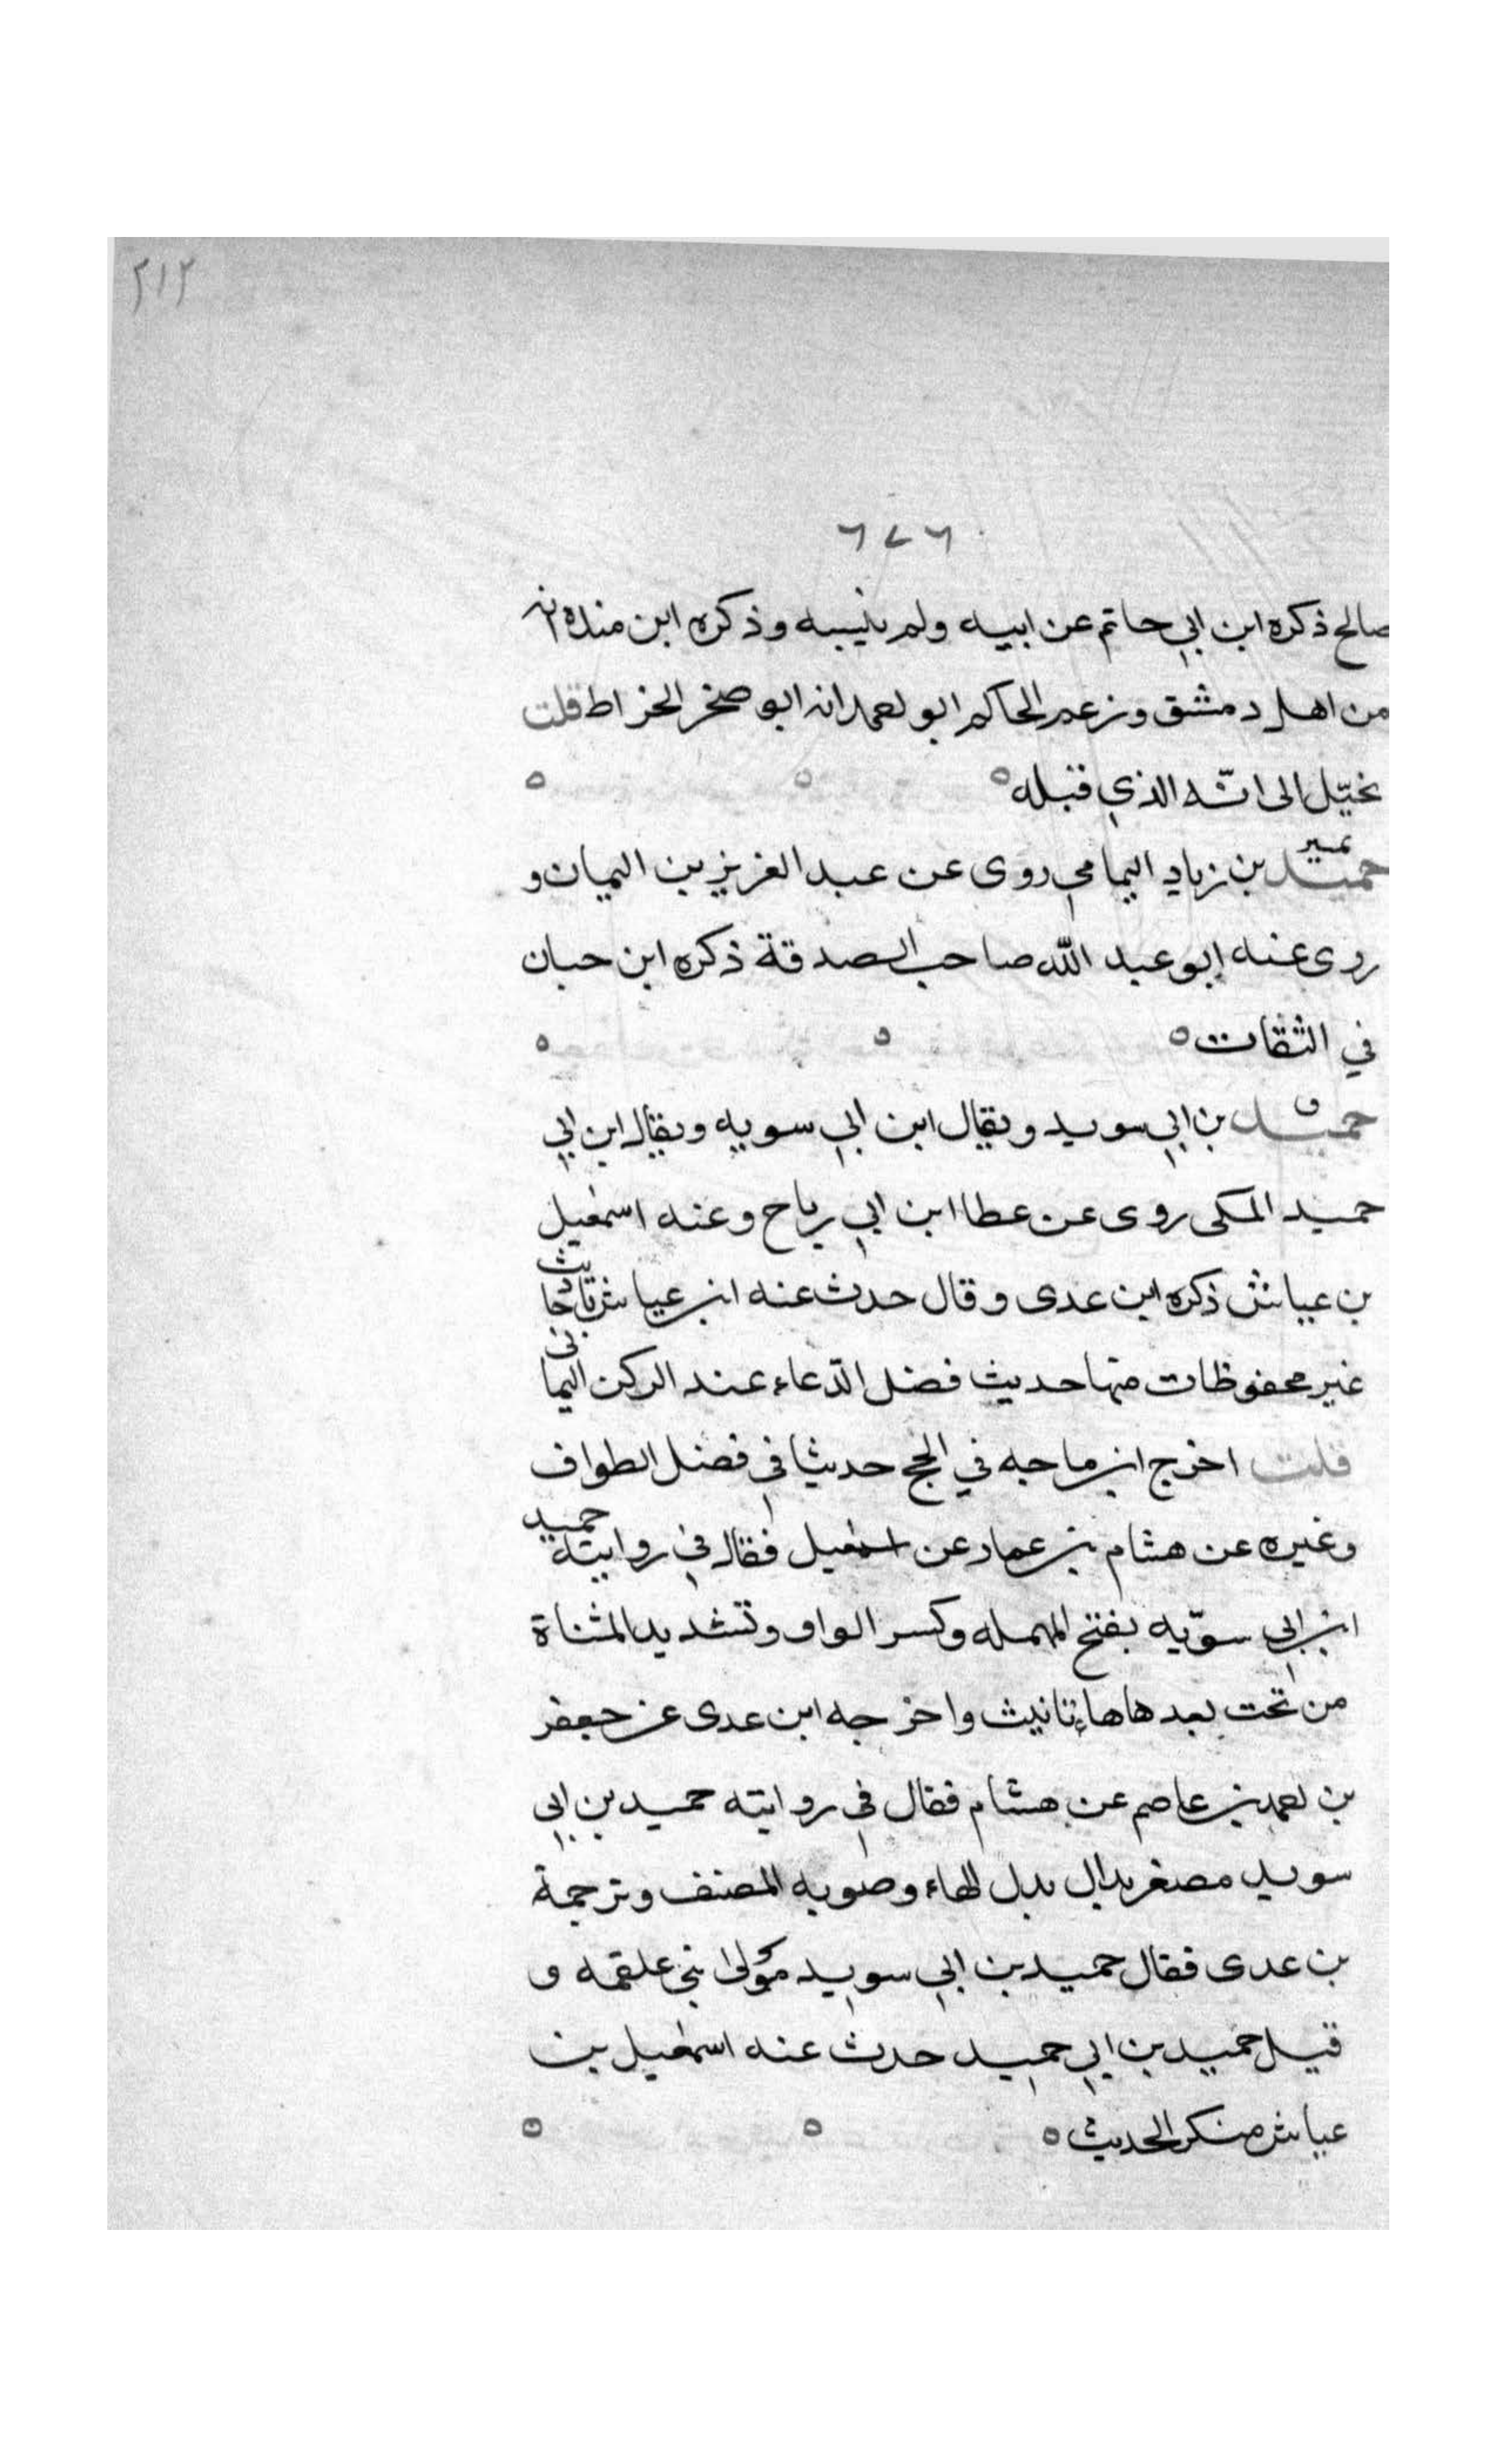 ٢١٢
٦٧٦
صالح ذكره ابن ابي حاتم عن ابيه ولم ينسبه وذكره ابن منده انه
من اهل دمشق وزعم الحاكم ابو احمد انه ابو صخر الخراط قلت
يخيّل الى انّه الذي قبله
تمييز
حميد بن زياد اليمامي روى عن عبد العزيز بن اليمان و
روى عنه ابو عبد الله صاحب الصدقة ذكره ابن حبان
في الثقات
ق
حميد بن ابي سويد ويقال ابن ابي سويه ويقال ابن ابي
حميد المكى روى عن عطا ابن ابي رباح وعنه اسمعيل
بن عياش ذكره ابن عدى وقال حدث عنه ابن عياش باحاديث
غير محفوظات منها حديث فضل الدّعاء عند الركن اليمانى
قلت اخرج ابن ماجه في الحج حديثا في فضل الطواف
وغيره عن هشام بن عمار عن اسمعيل فقال في روايته حميد
ابن ابي سوّيه بفتح المهمله وكسر الواو وتشديد المثناة
من تحت بعدها هاء تانيث واخرجه ابن عدى عن جعفر
بن احمد بن عاصم عن هشام فقال في روايته حميد بن ابي
سويد مصغر بدال بدل الهاء وصوبه المصنف وترجمة
بن عدى فقال حميد بن ابي سويد مولى بني علقمه و
قيل حميد بن ابي حميد حدث عنه اسمعيل بن
عياش منكر الحديث